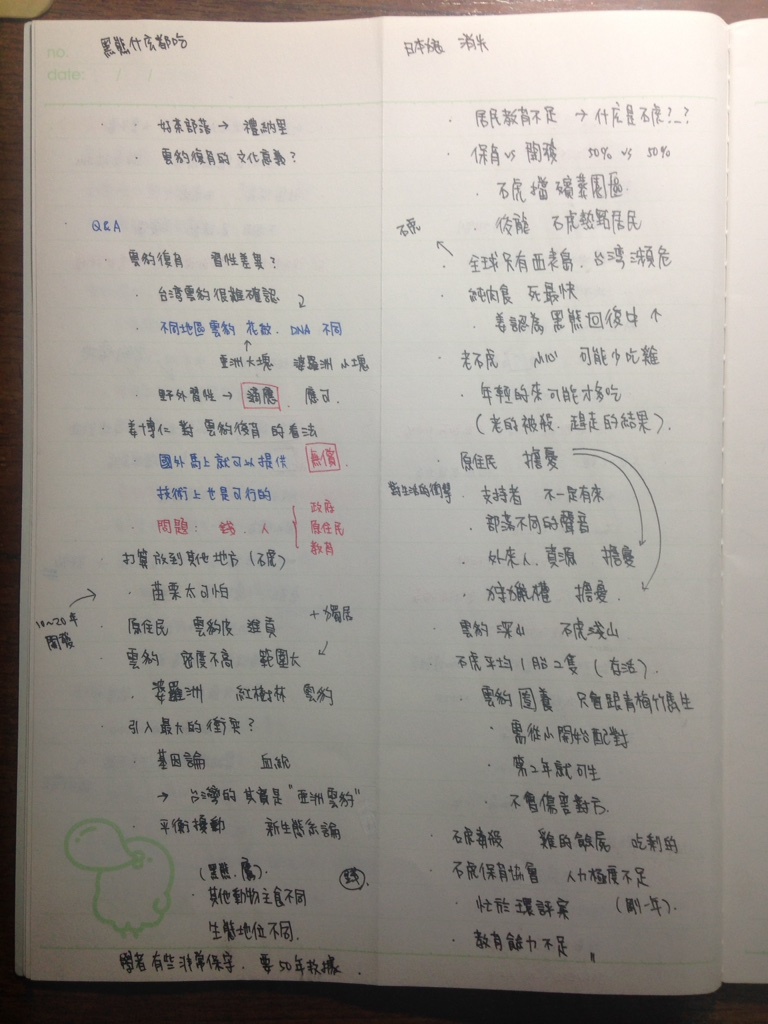 no.
date: / /
黑熊什麼都吃
好茶部落 → 禮納里
雲豹復育的文化意義?
Q&A
雲豹復育 習性差異?
台湾雲豹很難確認
不同地區雲豹 花紋. DNA 不同
亞洲大塊 婆羅洲小塊
野外習性 → 適應. 應可.
姜博仁 對 雲豹復育 的看法
國外馬上就可以提供 無償.
技術上也是可行的
問題: 錢. 人
政府
原住民
教育
打算放到其他地方 (石虎)
苗栗太可怕
10~20年
開發
原住民 雲豹皮 進貢 +獨居
雲豹 密度不高 範圍大
婆羅洲 紅樹林 雲豹
引入最大的衝突?
基因論 血統
→ 台灣的其實是"亞洲雲豹"
平衡擾動 新生態系論
(黑熊.鷹).
其他動物主食不同
生態地位不同.
學者有些非常保守. 要50年數據.
日本狼 消失
居民教育不足 → 什麼是石虎?_?
保育 vs 開發 50% vs 50%
石虎擋殯葬園區.
後龍 石虎熱點居民
石虎
全球只有西表島. 台湾瀕危
純肉食 死最快
姜認為黑熊回復中 ↑
老石虎 可能少吃雞
年輕的來可能才多吃
(老的被殺. 趕走的結果).
原住民 擔憂
對生活的衝擊
支持者 不一定有來
部落不同的聲音
外來人.資源 擔憂
狩獵權 擔憂.
雲豹深山 石虎淺山
石虎平均1胎2隻 (存活).
雲豹圈養 只會跟青梅竹馬生
需從小開始配對
第2年就可生
不會傷害對方.
石虎毒殺 雞的飯屍 吃剩的
石虎保育協會 人力極度不足
忙於環評案 (剛一年).
教育能力不足